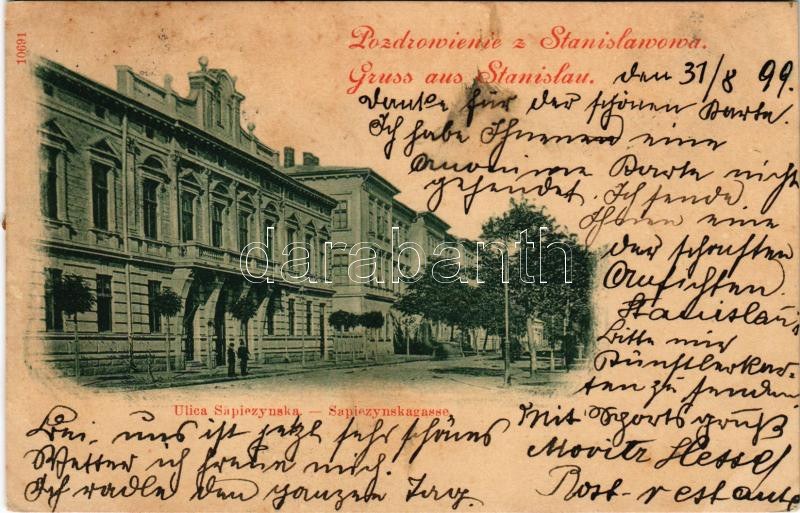 10691
Pozdrowienie z Stanisławowa.
Gruss aus Stanislau.
den 31/8 99.
Danke für der schönen Karte.
Ich habe Ihnen eine
anonime Karte nicht
gesendet. Ich sende
Ihnen eine
der schönsten
Ansichten
Stanislau's
Bitte mir
Künstlerkar-
ten zu senden
Mit Sportsgruß
Moritz Hessel
Post-restante
darabanth
Ulica Sapiezynska. — Sapiezynskagasse.
Bei uns ist jetzt sehr schönes
Wetter ich freue mich.
Ich radle den ganzen Tag.